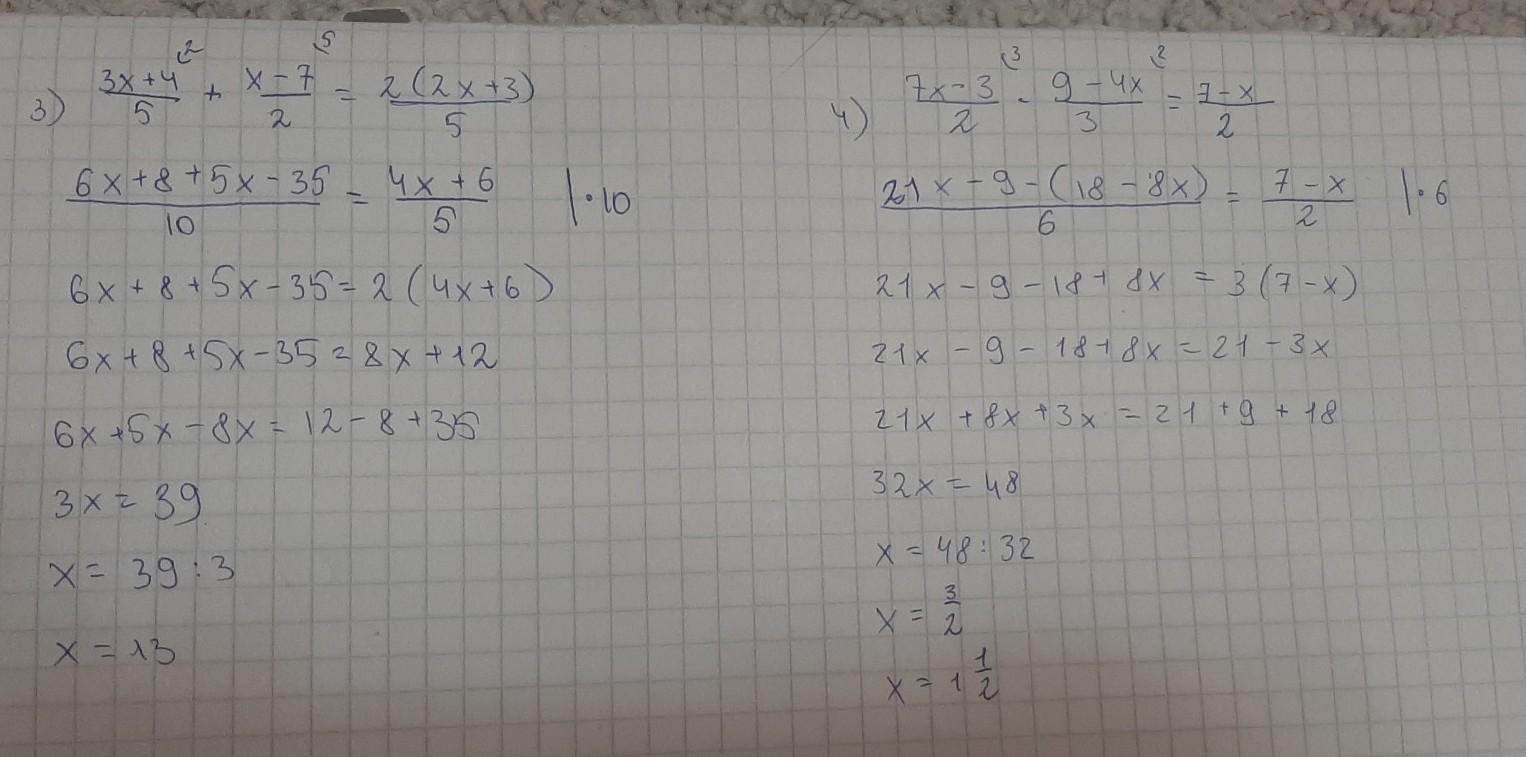 3) (3x+4)/5 ⁽² + (x-7)/2 ⁽⁵ = 2(2x+3)/5
(6x+8+5x-35)/10 = (4x+6)/5 |·10
6x+8+5x-35=2(4x+6)
6x+8+5x-35=8x+12
6x+5x-8x=12-8+35
3x=39
x=39:3
x=13
4) (7x-3)/2 ⁽³ - (9-4x)/3 ⁽² = (7-x)/2
(21x-9-(18-8x))/6 = (7-x)/2 |·6
21x-9-18+8x=3(7-x)
21x-9-18+8x=21-3x
21x+8x+3x=21+9+18
32x=48
x=48:32
x=3/2
x=1 1/2